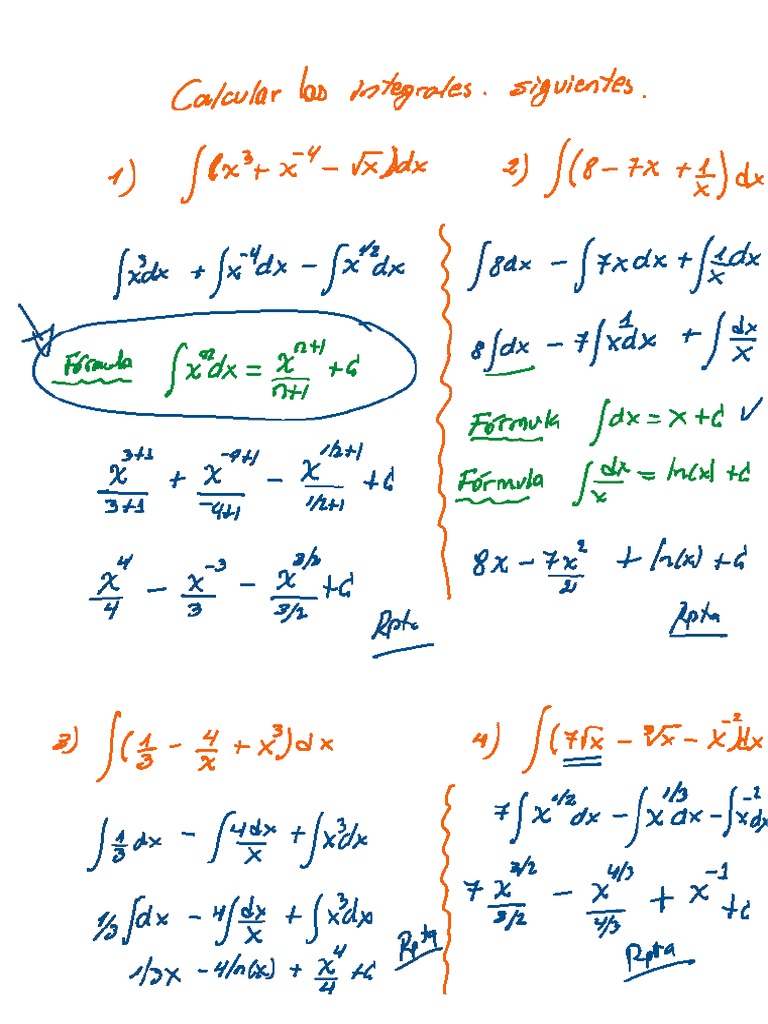 Calcular las integrales. siguientes.
1) ∫(x³ + x⁻⁴ − √x)dx
∫x³dx + ∫x⁻⁴dx − ∫x^(1/2)dx
Fórmula ∫xⁿdx = x^(n+1)/(n+1) + C
x^(3+1)/(3+1) + x^(-4+1)/(-4+1) − x^(1/2+1)/(1/2+1) + C
x⁴/4 − x⁻³/3 − x^(3/2)/(3/2) + C
Rpta
2) ∫(8 − 7x + 1/x)dx
∫8dx − ∫7xdx + ∫1/x dx
8∫dx − 7∫x¹dx + ∫dx/x
Fórmula ∫dx = x + C ✓
Fórmula ∫dx/x = ln(x) + C
8x − 7x²/2 + ln(x) + C
Rpta
3) ∫(1/3 − 4/x + x³)dx
∫1/3 dx − ∫4dx/x + ∫x³dx
1/3∫dx − 4∫dx/x + ∫x³dx
1/3x − 4ln(x) + x⁴/4 + C
Rpta
4) ∫(7√x − ³√x − x⁻²)dx
7∫x^(1/2)dx − ∫x^(1/3)dx − ∫x⁻²dx
7x^(3/2)/(3/2) − x^(4/3)/(4/3) + x⁻¹ + C
Rpta